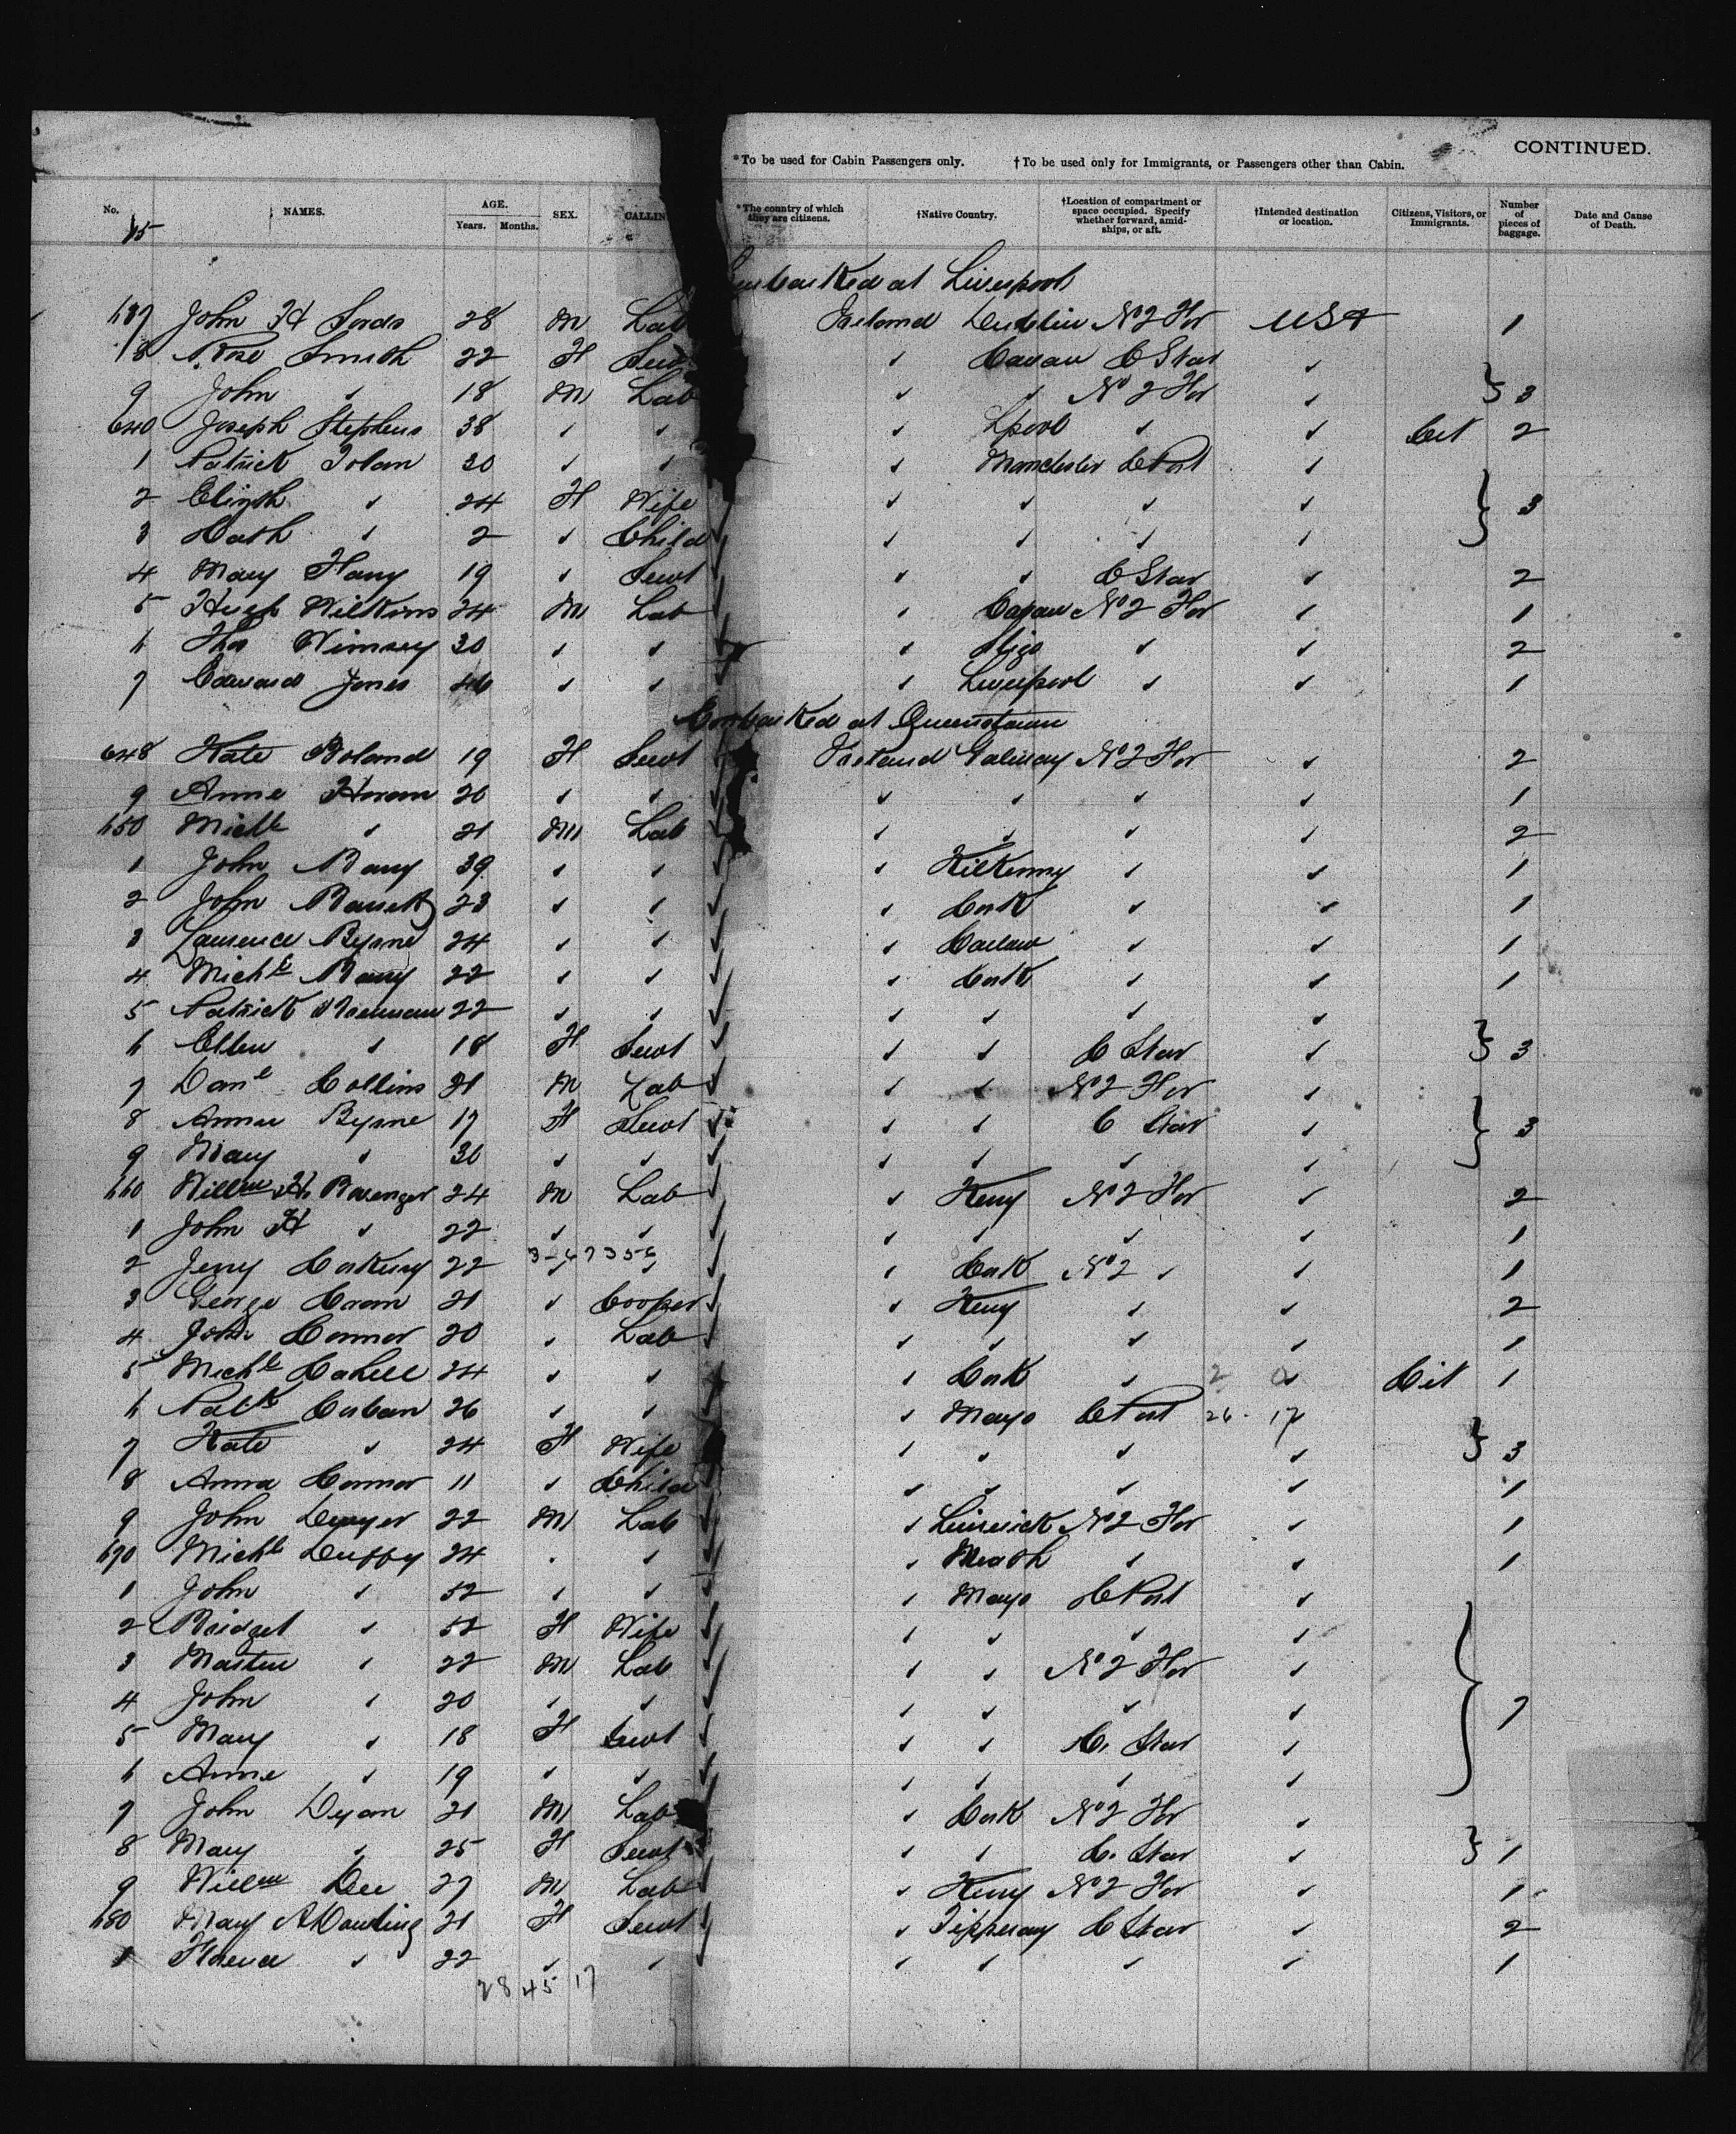 CONTINUED.
*To be used for Cabin Passengers only. †To be used only for Immigrants, or Passengers other than Cabin.
No. NAMES. AGE. Years. Months. SEX. CALLIN *The country of which they are citizens. †Native Country. †Location of compartment or space occupied. Specify whether forward, amidships, or aft. †Intended destination or location. Citizens, Visitors, or Immigrants. Number of pieces of baggage. Date and Cause of Death.
15
Embarked at Liverpool
637 John H 28 M Lab Ireland Dublin No 2 For USA 1
8 Rose Smith 22 F Servt " Cavan C Star "
9 John " 18 M Lab " " No 2 For " } 3
640 Joseph Stephens 38 " " " Lpool " " Cit 2
1 Patrick Tolan 30 " " " Manchester C Port "
2 Elizth " 24 F Wife " " " " } 3
3 Cath " 2 " Child " " " "
4 Mary 19 " Servt " " C Star " 2
5 Hugh Wilkins 24 M Lab " Cavan No 2 For " 1
6 Thos Wimsey 30 " " " Sligo " " 2
7 Edward Jones 46 " " " Liverpool " " 1
Embarked at Queenstown
648 Kate Boland 19 F Servt Ireland Galway No 2 For " 2
9 Anne Horan 20 " " " " " " 1
650 Michl " 21 M Lab " " " " 2
1 John Barry 39 " " " Kilkenny " " 1
2 John Barrett 23 " " " Cork " " 1
3 Laurence Byrne 24 " " " Carlow " " 1
4 Michl Barry 22 " " " Cork " " 1
5 Patrick 22 " " " " " "
6 Ellen " 18 F Servt " " C Star " } 3
7 Danl Collins 21 M Lab " " No 2 For "
8 Annie Byrne 17 F Servt " " C Star " } 3
9 Mary " 30 " " " " " "
660 Willm H 24 M Lab " Kerry No 2 For " 2
1 John H " 22 " " " " " " 1
2 Jerry Corkery 22 " " " Cork No 2 " " 1
3-47356
3 George Cram 21 " Cooper " Kerry " " 2
4 John Connor 20 " Lab " " " " 1
5 Michl Cahill 24 " " " Cork " 2 0 " Cit 1
6 Patk Corban 26 " " " Mayo C Port 26 - 17 "
7 Kate " 24 F Wife " " " " } 3
8 Anna Connor 11 " Child " " " " 1
9 John Dwyer 22 M Lab " Limerick No 2 For " 1
670 Michl Duffy 24 " " " Meath " " 1
1 John " 52 " " " Mayo C Port "
2 Bridget " 52 F Wife " " " "
3 Martin " 22 M Lab " " No 2 For "
4 John " 20 " " " " " " } 7
5 Mary " 18 F Servt " " C. Star "
6 Anne " 19 " " " " " "
7 John Dyan 21 M Lab " Cork No 2 For "
8 Mary " 25 F Servt " " C. Star " } 1
9 Willm Dee 27 M Lab " Kerry No 2 For " 1
680 Mary A Dowling 21 F Servt " Tipperary C Star " 2
1 " 22 " " " " " " 1
28 45 17